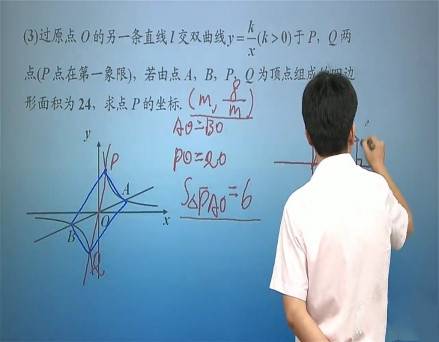 (3)过原点 O 的另一条直线 l 交双曲线 y = k/x (k > 0)于 P，Q 两
点(P 点在第一象限)，若由点 A，B，P，Q 为顶点组成的四边
形面积为 24，求点 P 的坐标. (m, 8/m)
AO=BO
PO=QO
S△PAO=6
y
P
A
O
x
B
Q